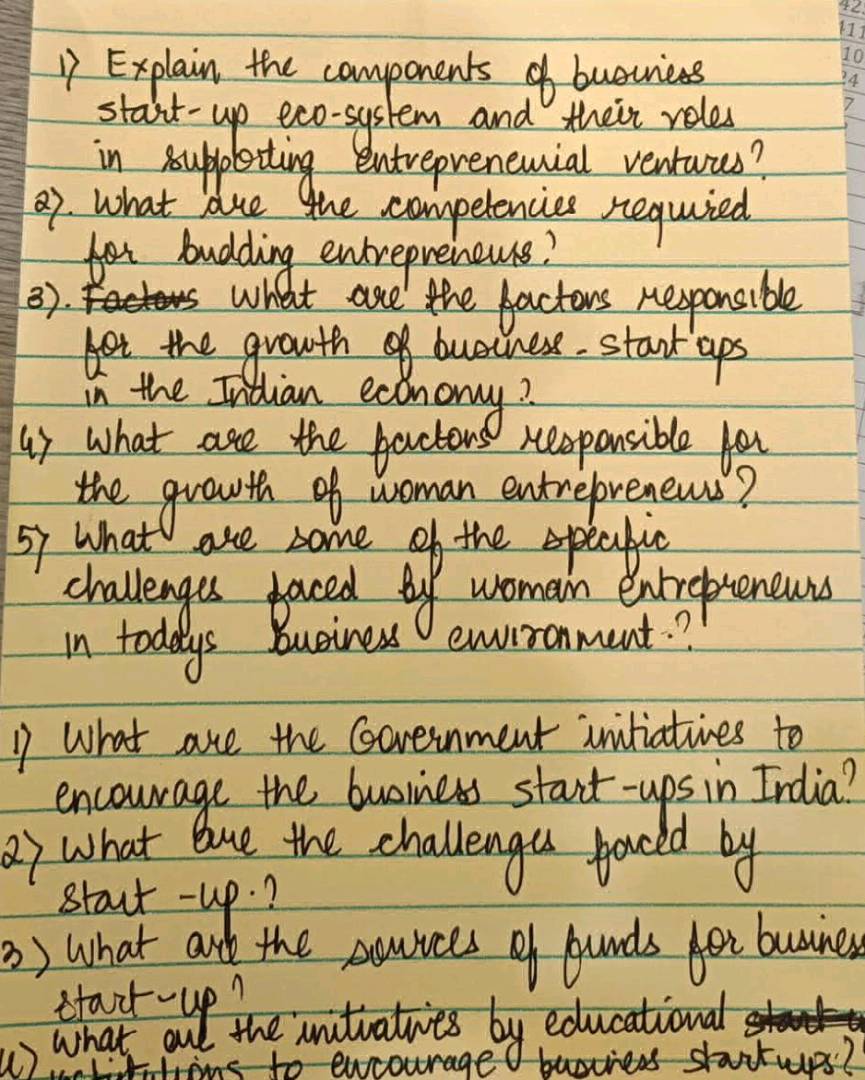 1) Explain the components of business
start-up eco-system and their roles
in supporting entrepreneurial ventures?
2). What are the competencies required
for budding entrepreneurs?
3). Factors What are the factors responsible
for the growth of business - start ups
in the Indian economy?
4) What are the factors responsible for
the growth of woman entrepreneurs?
5) What are some of the specific
challenges faced by woman entrepreneurs
in todays business environment.?
1) What are the Government initiatives to
encourage the business start-ups in India?
2) What are the challenges faced by
start-up.?
3) What are the sources of funds for business
start-up?
4) What are the initiatives by educational
institutions to encourage business startups?